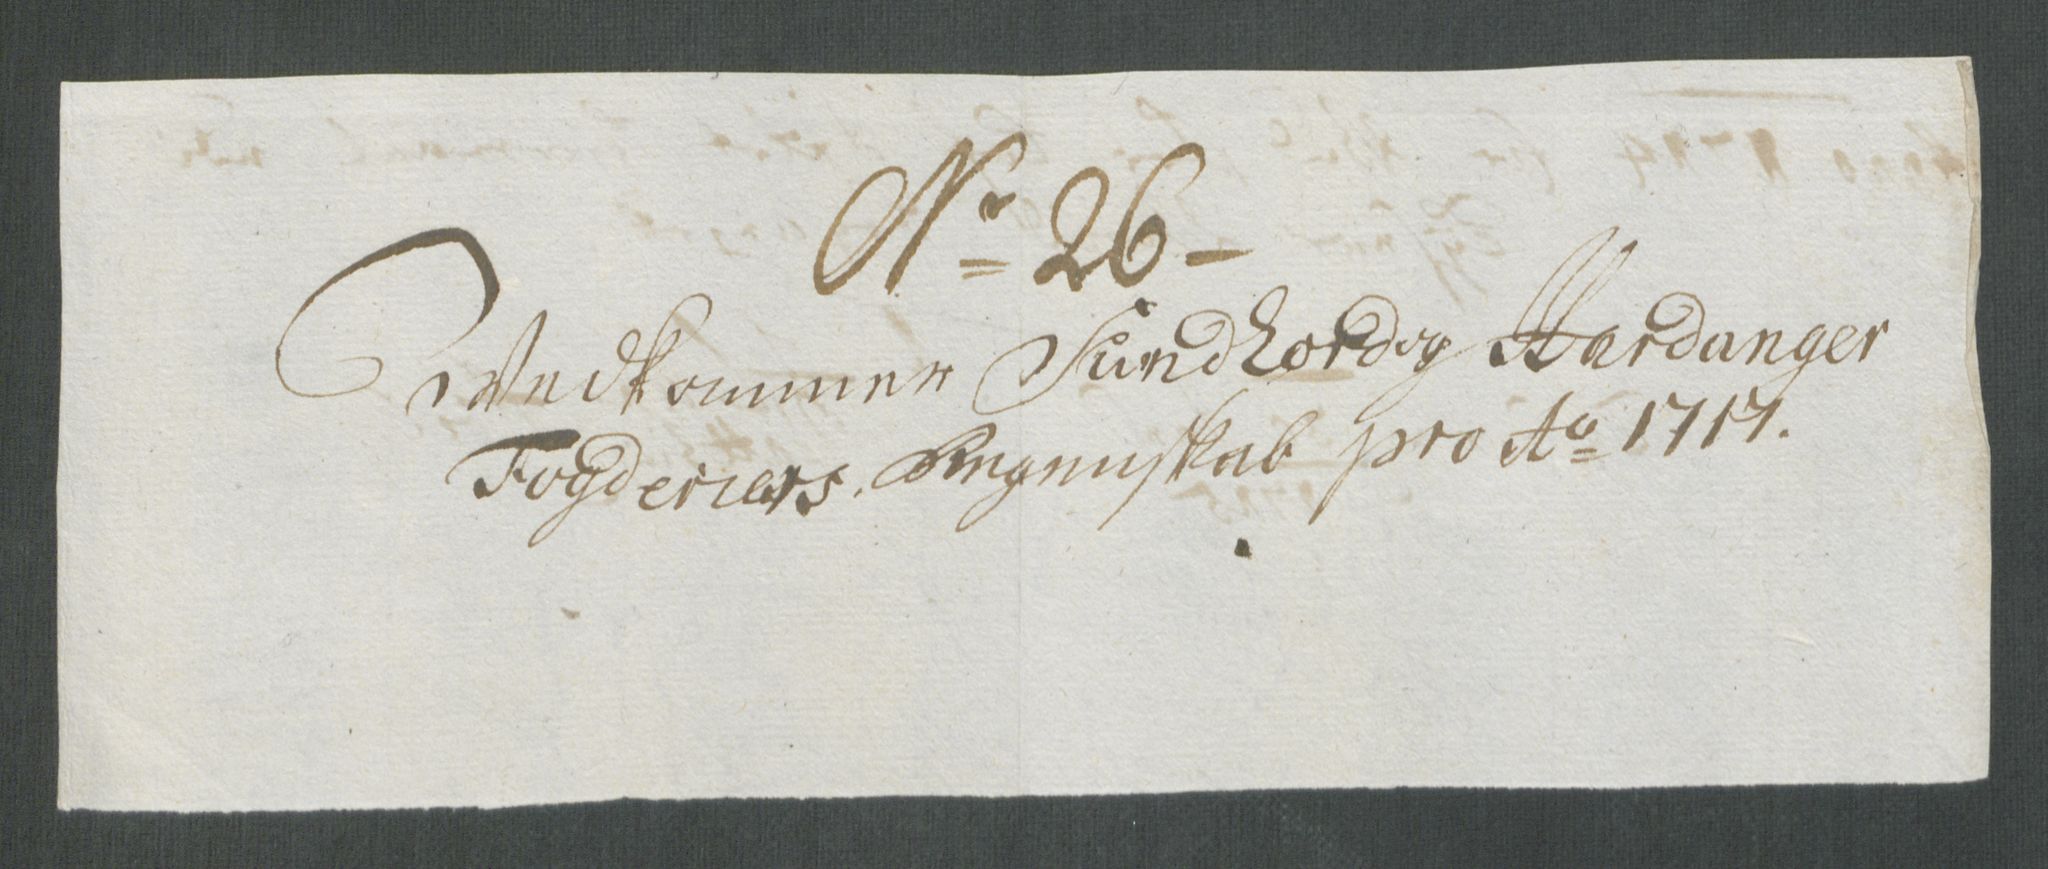 No 26-
Vedkommer Sundhord og Hardanger
Fogderiers. Regenskab pro Ao 1717.